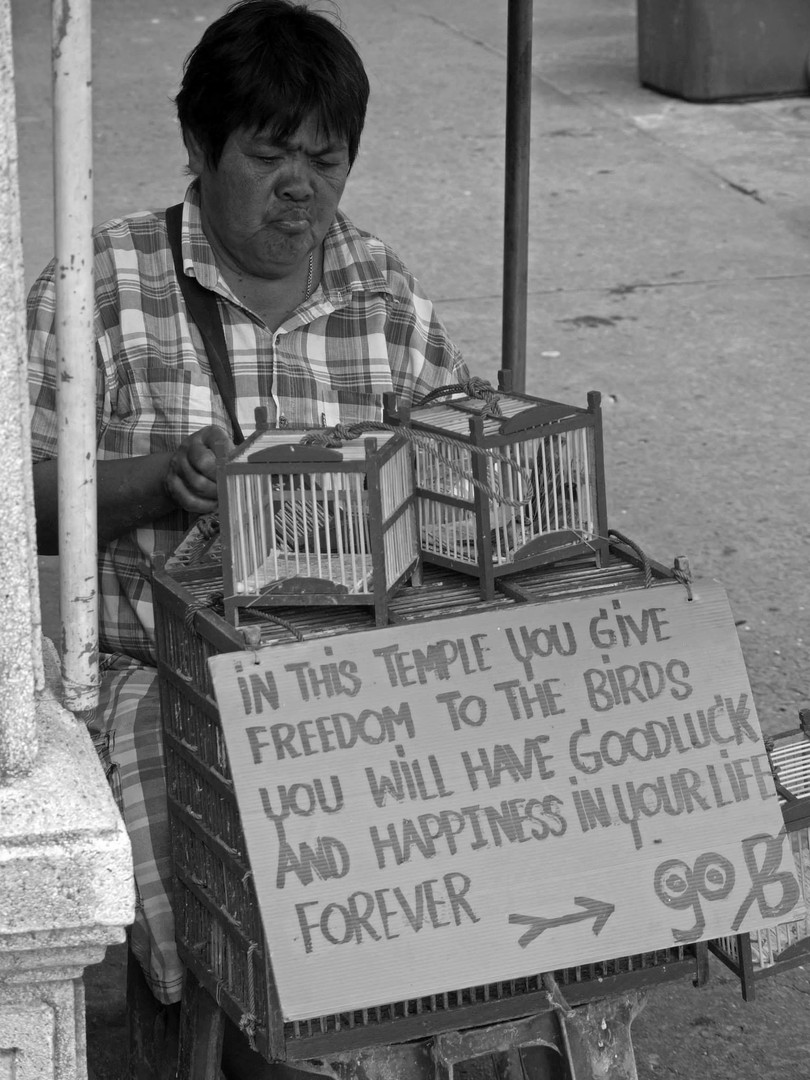 iN THiS TEMPLE YOU GiVE
FREEDOM TO THE BiRDS
YOU WiLL HAVE GOODLUCK
AND HAPPINESS iN YOUR LIFE
FOREVER → 90 B